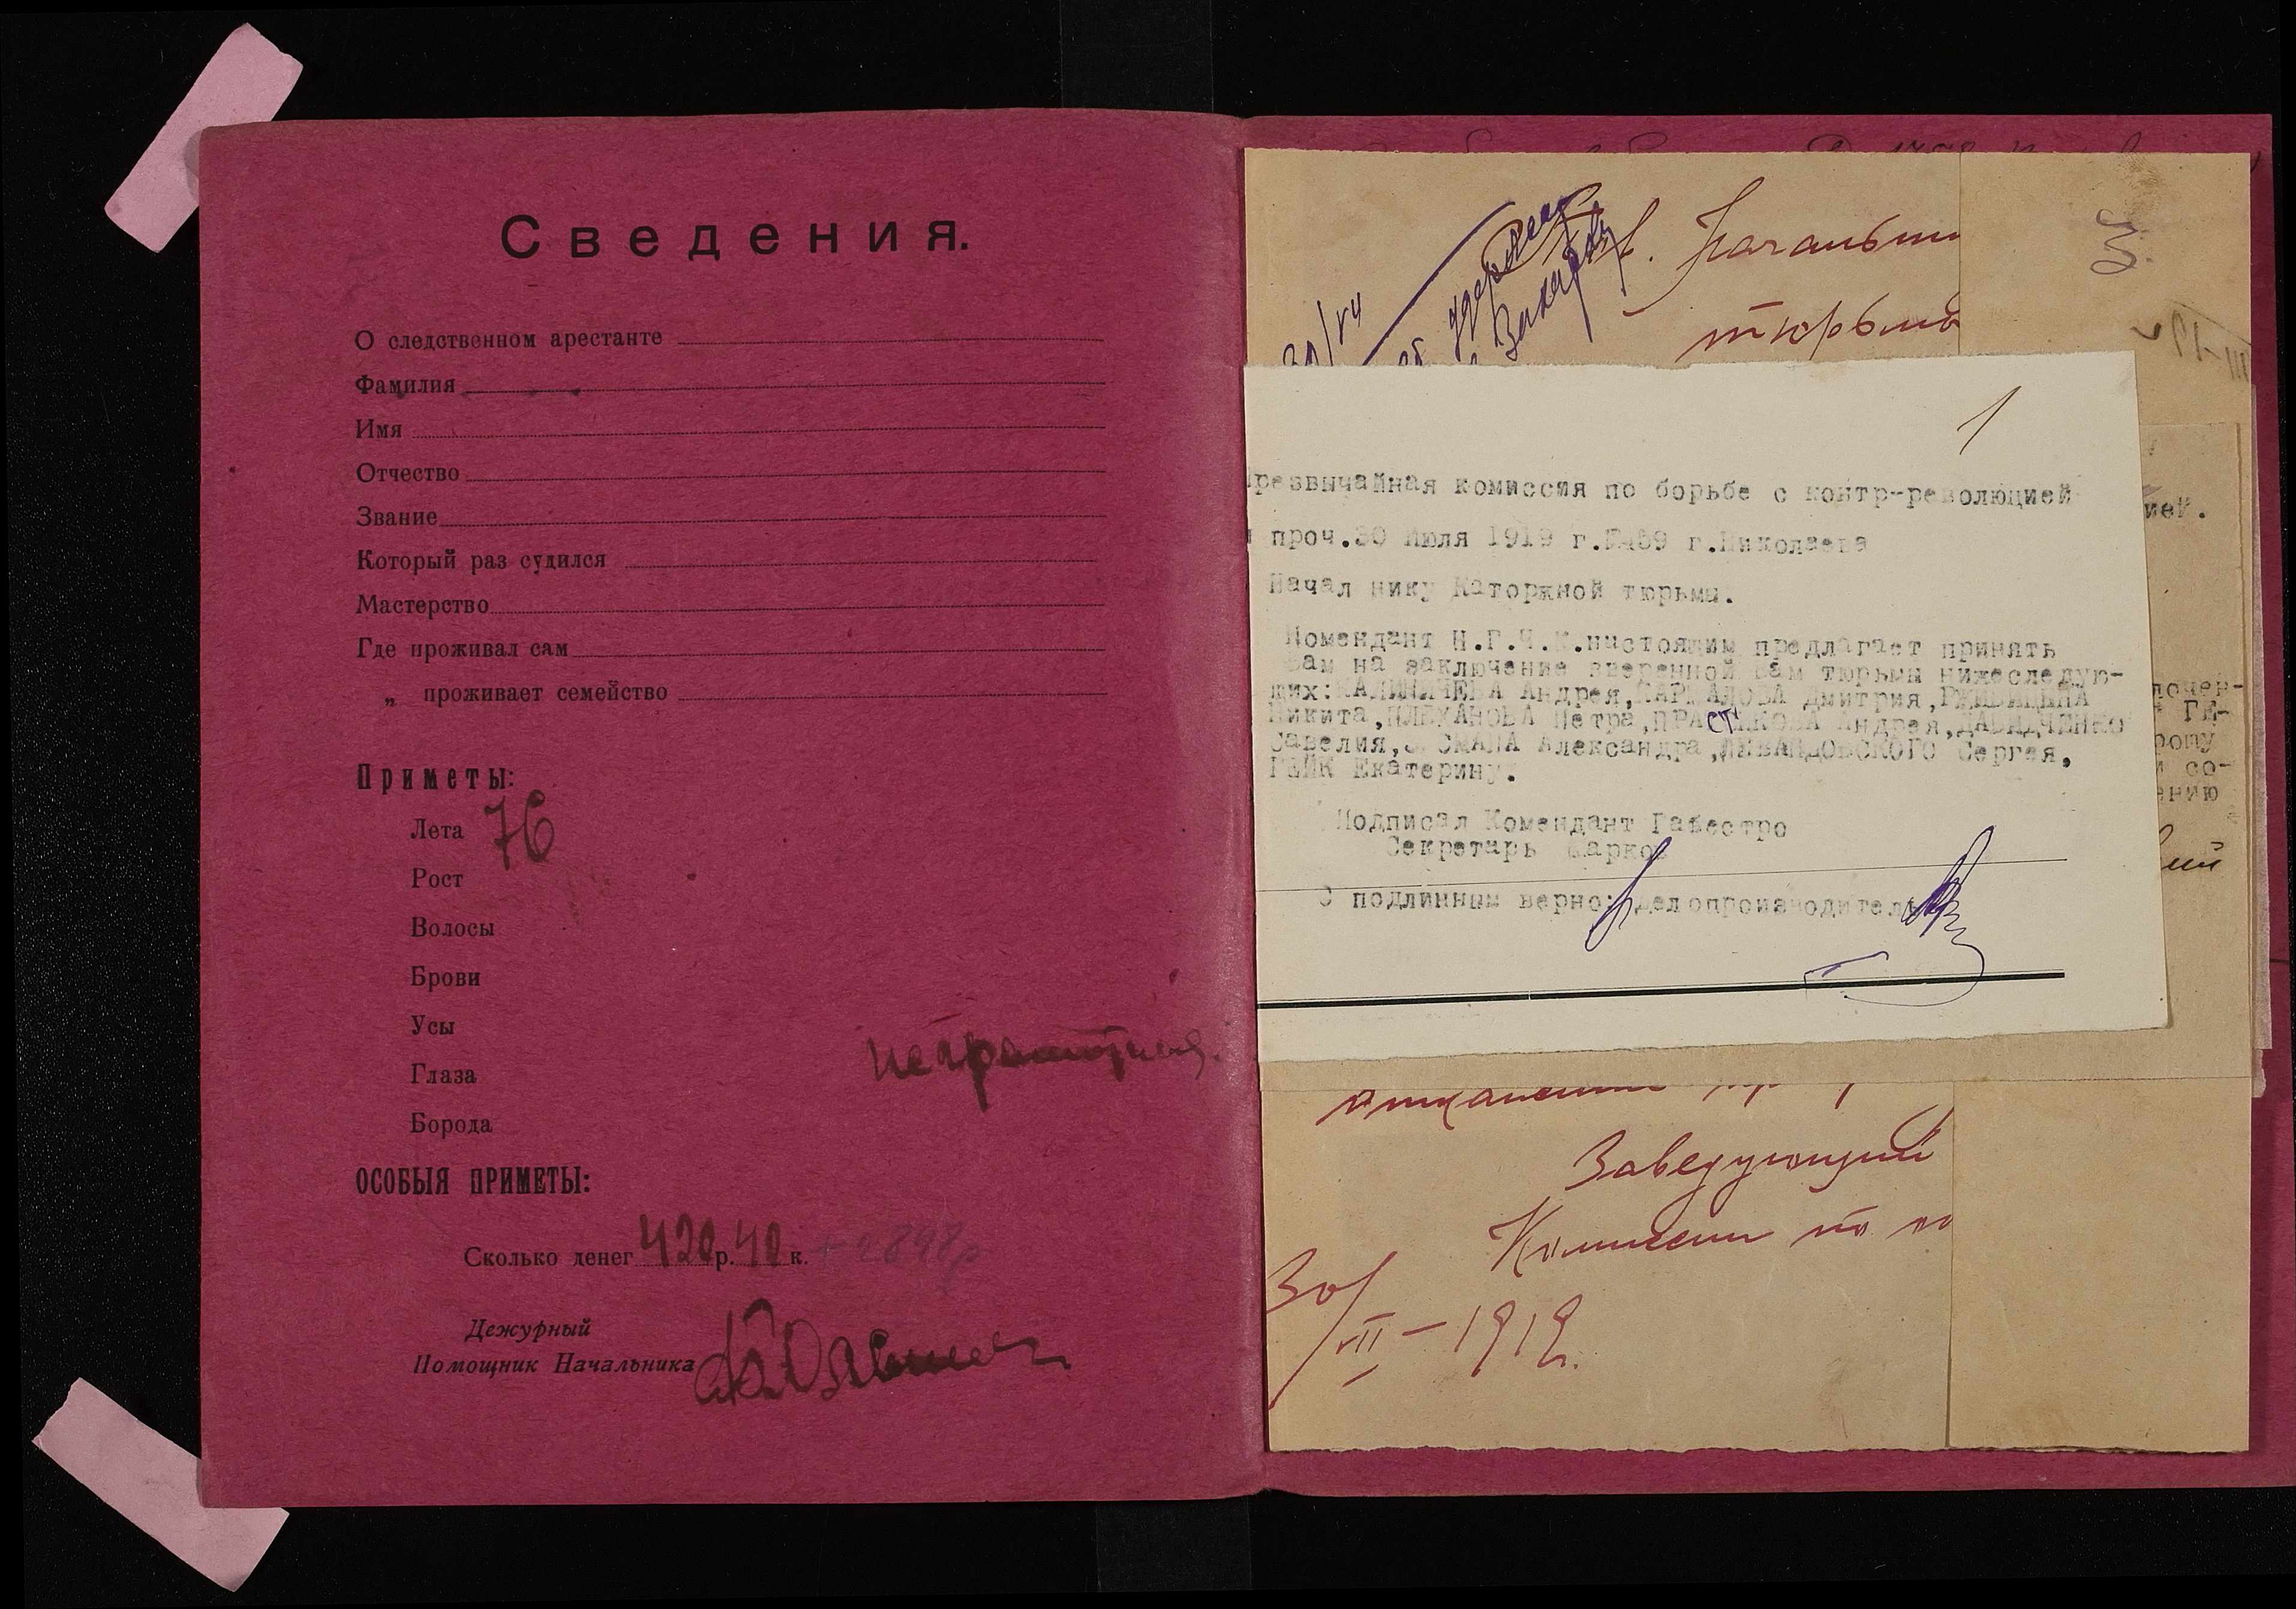 Сведения.
О следственном арестанте
Фамилия
Имя
Отчество
Звание
Который раз судился
Мастерство
Где проживал сам
„ проживает семейство
Приметы:
Лета 76
Рост
Волосы
Брови
Усы
Глаза
Борода
неграмотная.
ОСОБЫЯ ПРИМЕТЫ:
Сколько денег 420 р. 40 к. + 2898р
Дежурный
Помощник Начальника
Начальни
тюрьмы
3.
1
резвычайная комиссия по борьбе с контр-революцией
проч.30 Июля 1919 г. г.Николаева
Начал нику Каторжной тюрьмы.
Комендант Н.Г.Ч.К.настоящим предлагает принять
Вам на заключение вверенной Вам тюрьмы нижеследую-
щих:КАЛИНИЧЕВА Андрея, Дмитрия,
Никита,ПЛЕХАНОВА Петра, Андрея,ДАВИДЧЕНКО
Савелия, Александра,ЛЕВАНДОВСКОГО Сергея,
ГЕЙК Екатерину.
Подписал Комендант
Секретарь Марков
С подлинным верно: делопроизводитель
ией.
лочен-
ГЕ-
рому
и со-
ению
ий
Заведующий
Комиссии по
30/VII – 1919г.